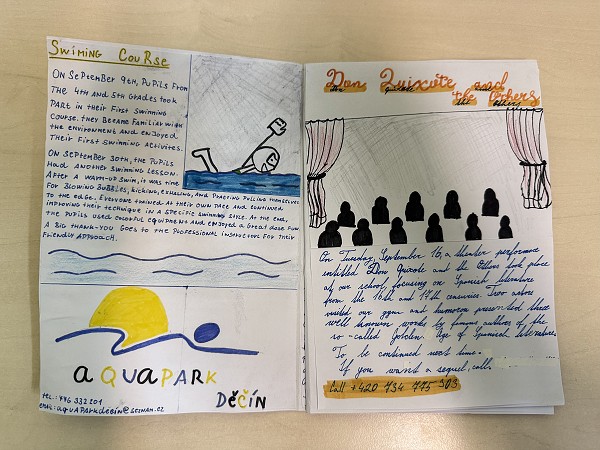 Swiming Course
On September 9th, pupils from
the 4th and 5th grades took
part in their first swimming
course. They became familiar with
the environment and enjoyed
their first swimming activites.
On September 30th, the pupils
had another swimming lesson.
After a warm-up swim, it was time
for blowing bubbles, kicking, exhaling, and practing pulling themselves
to the edge. Everyone trained at their own pace and continued
improving their technique in a specific swimming style. At the end,
the pupils used colorful equipment and enjoyed a great dose fun.
A big thank-you goes to the professional instructors for their
friendly approach.
aQUaPARK
Děčín
tel.: 776 332 201
email: aquaparkdecin@seznam.cz
Don Quixote and
the Others
On Tuesday, September 16, a theater performance
entitled Don Quixote and the Others took place
at our school, focusing on Spanish literature
from the 16th and 17th centuries. Two actors
visited our gym and humorou presented three
well known works by famous authors of the
so-called Golden Age of Spanish literature.
To be continued next time.
If you want a sequel, call.
Call +420 734 775 303